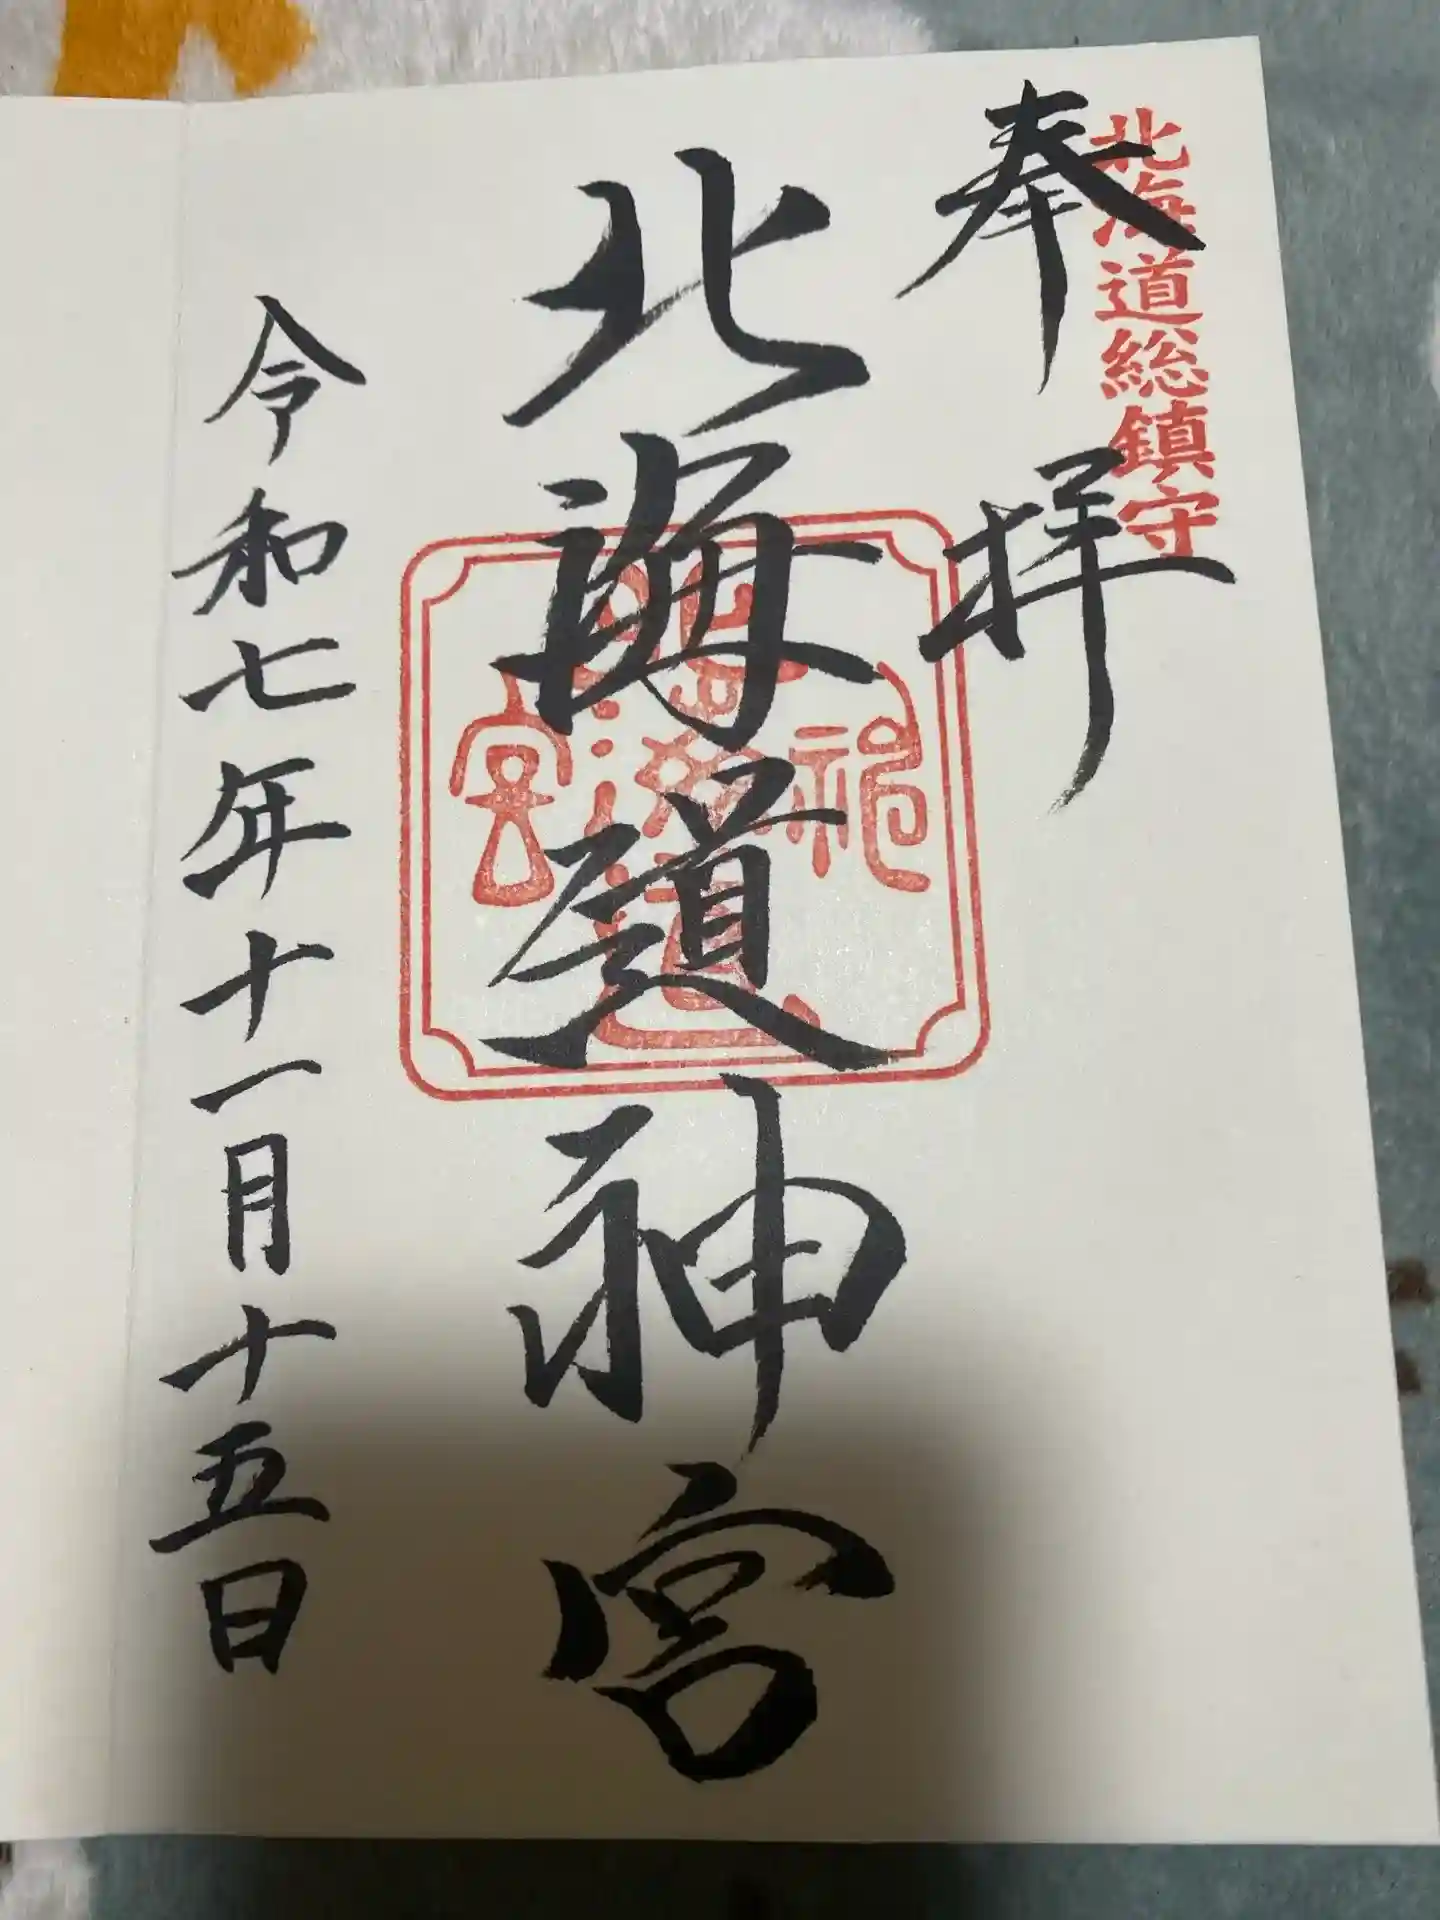 北海道総鎮守
奉拝
北海道神宮
北海道神宮
令和七年十一月十五日